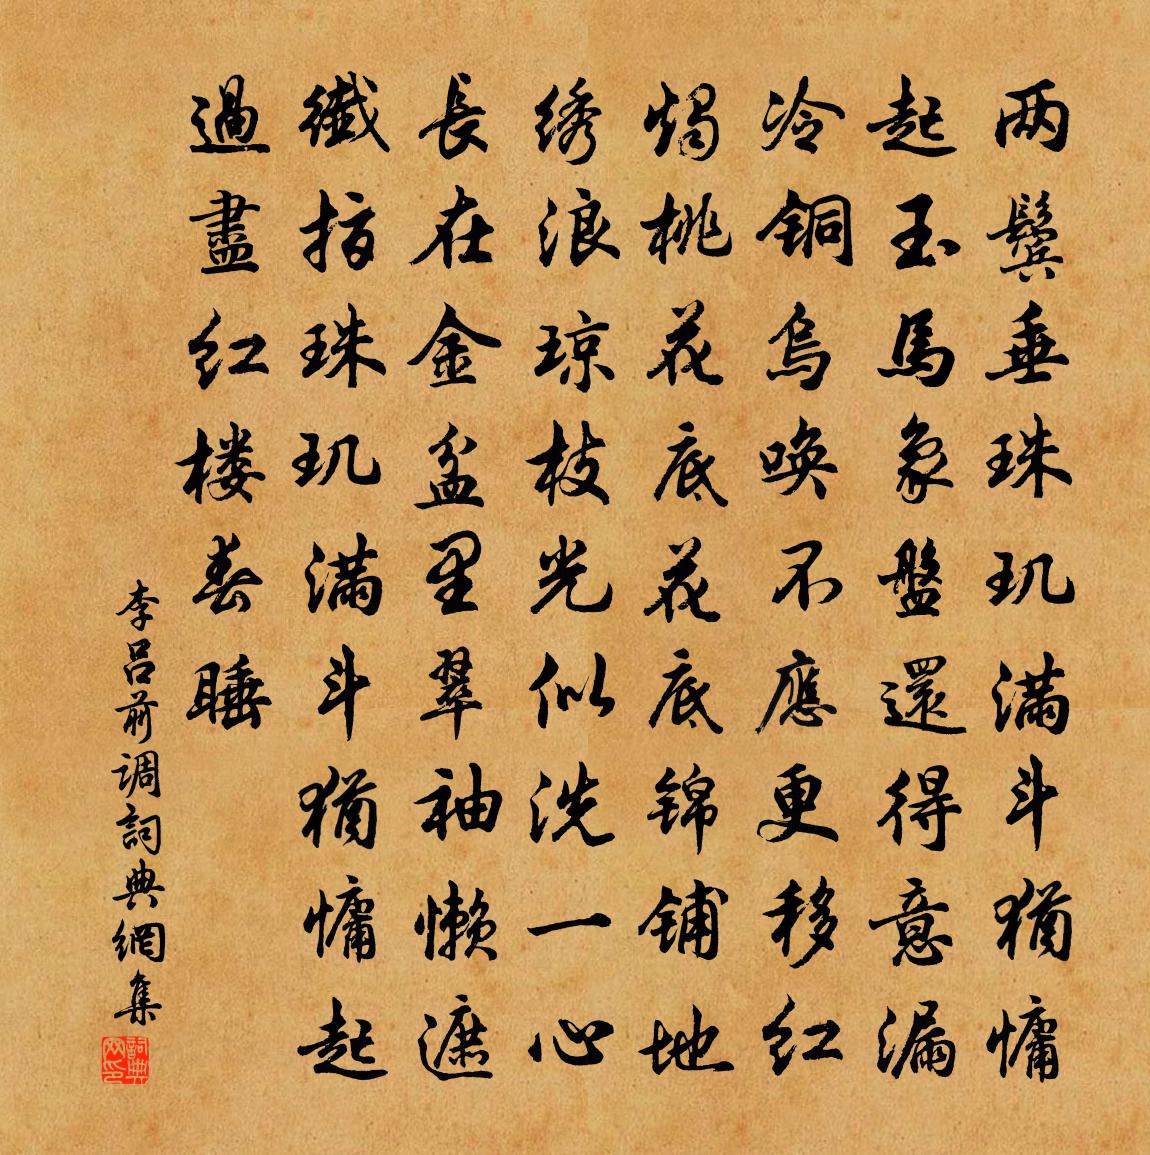 两鬓垂珠玑满斗犹慵
起玉馬象盤還得意漏
冷铜烏唤不應更移红
燭桃花底花底锦铺地
绣浪琼枝光似洗一心
長在金盆里翠袖懒遮
纖指珠玑满斗犹慵起
過盡红楼春睡
李吕前调詞典網集
詞典网印